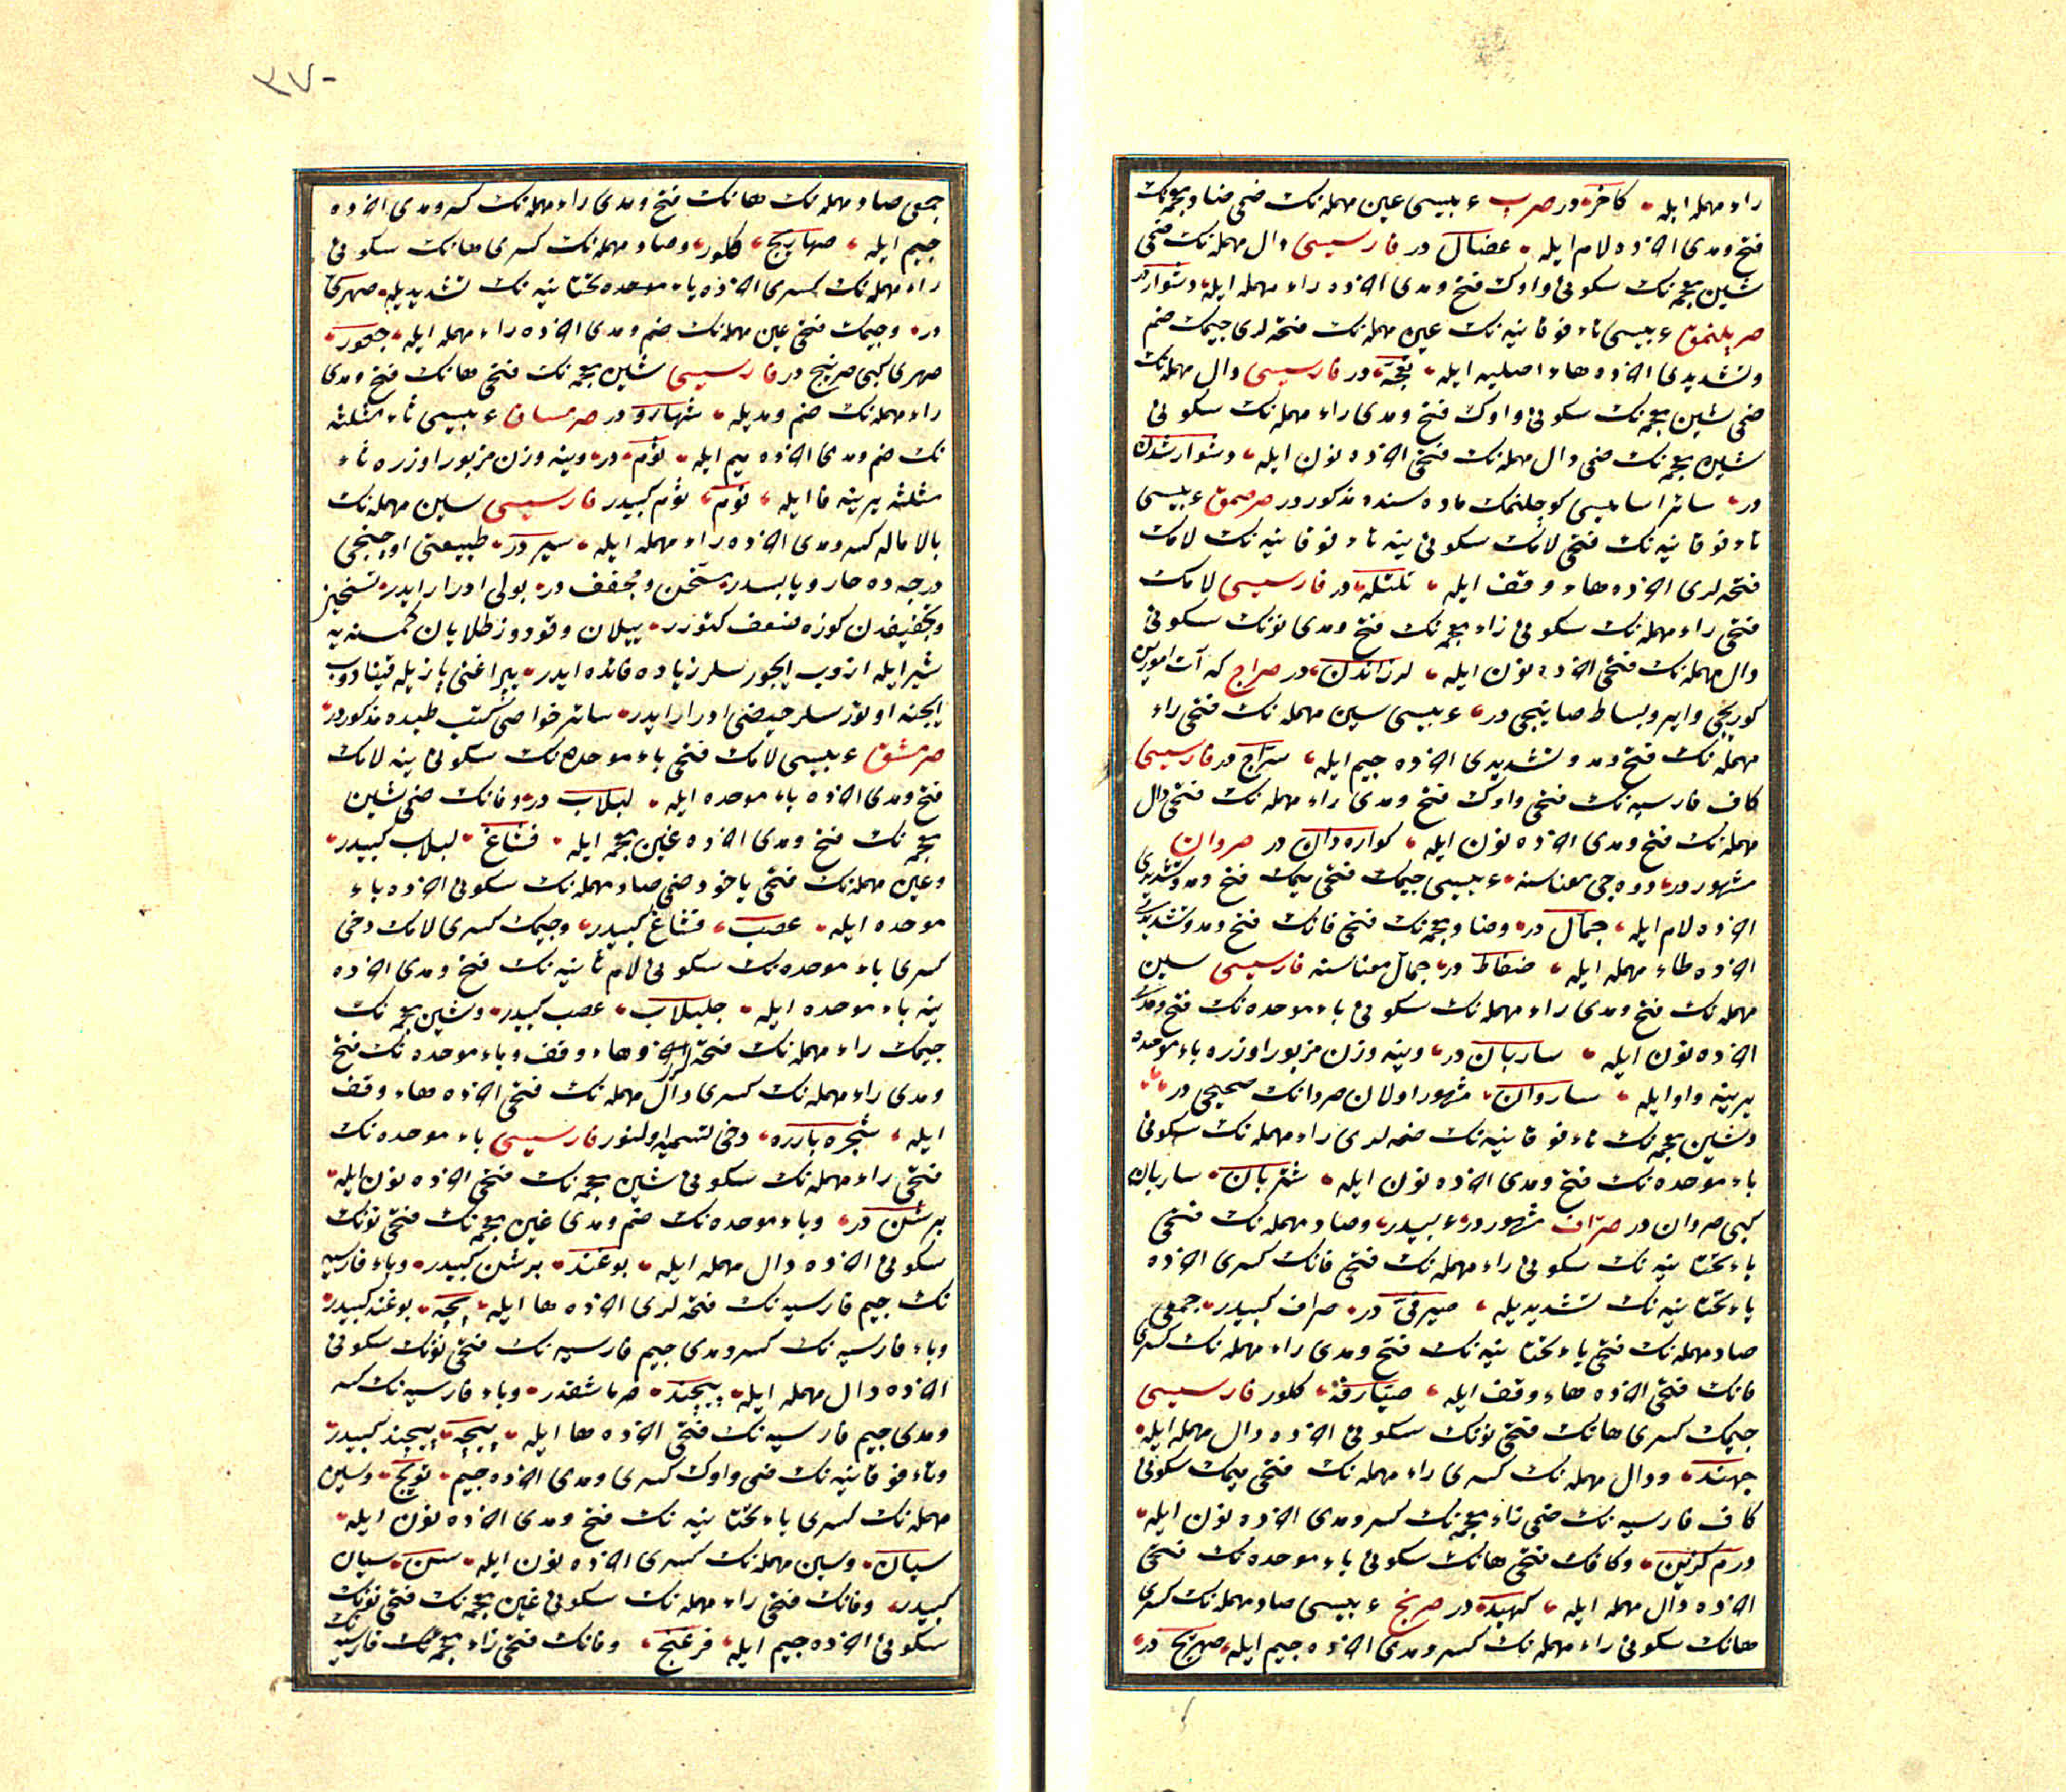 راء مهمله ایله کاخر در صرپ عربیسی عین مهمله نک ضمی ضاد معجمه نک
فتح و مدی اخرده لام ایله عضال در فارسیسی دال مهمله نک ضمی
شین معجمه نک سکونی واوک فتح و مدی اخرده راء مهمله ایله دشوار در
صرپلنمق عربیسی تاء فوقانیه نک عین مهمله نک فتحه لری جیمک ضم
وتشدیدی اخرده هاء اصلیه ایله در فارسیسی دال مهمله نک
ضمی شین معجمه نک سکونی واوک فتح و مدی راء مهمله نک سکونی
شین معجمه نک ضمی دال مهمله نک فتحی اخرده نون ایله دشوار شدن
در سائر اسامیسی کوجلنمک ماده سنده مذکور در صرصمق عربیسی
تاء فوقانیه نک فتحی لامک سکونی ینه تاء فوقانیه نک لامک
فتحه لری اخرده هاء وقف ایله تلتله در فارسیسی لامک
فتحی راء مهمله نک سکونی زاء معجمه نک فتح و مدی نونک سکونی
دال مهمله نک فتحی اخرده نون ایله لرزاندن در صراج که آت امورین
کوریجی وایر و بساط صاتیجی در عربیسی سین مهمله نک فتحی راء
مهمله نک فتح و مد و تشدیدی اخرده جیم ایله سراج در فارسیسی
کاف فارسیه نک فتحی واوک فتح و مدی راء مهمله نک فتحی دال
مهمله نک فتح و مدی اخرده نون ایله کواره دان در صروان
مشهور در دوه جی معناسنه عربیسی جیمک فتحی میمک فتح و مد و تشدیدی
اخرده لام ایله جمال در وضاد معجمه نک فتحی فانک فتح و مد و تشدیدی
اخرده طاء مهمله ایله ضفاط در جمال معناسنه فارسیسی سین
مهمله نک فتح و مدی راء مهمله نک سکونی باء موحده نک فتح و مدی
اخرده نون ایله ساربان در وینه وزن مزبور اوزره باء موحده
یرینه واو ایله ساروان مشهور اولان صروانک صحیحی در
وشین معجمه نک تاء فوقانیه نک ضمه لری راء مهمله نک سکونی
باء موحده نک فتح و مدی اخرده نون ایله شتربان ساربان
کبی صروان در صراف مشهور در عربیدر وصاد مهمله نک فتحی
یاء تحتانیه نک سکونی راء مهمله نک فتحی فانک کسری اخرده
یاء تحتانیه نک تشدیدیله صیرفی در صراف کبیدر جمعی
صاد مهمله نک فتحی یاء تحتانیه نک فتح و مدی راء مهمله نک کسری
فانک فتحی اخرده هاء وقف ایله صیارفة کلور فارسیسی
جیمک کسری هانک فتحی نونک سکونی اخرده دال مهمله ایله
جهند ودال مهمله نک کسری راء مهمله نک فتحی میمک سکونی
کاف فارسیه نک ضمی زاء معجمه نک کسر و مدی اخرده نون ایله
درم کزین وکافک فتحی هانک سکونی باء موحده نک فتحی
اخرده دال مهمله ایله کهبد در صرنج عربیسی صاد مهمله نک کسری
هانک سکونی راء مهمله نک کسر و مدی اخرده جیم ایله صهریج در
٣٧٠
جمعی صاد مهمله نک هانک فتح و مدی راء مهمله نک کسر و مدی اخرده
جیم ایله صهاریج کلور وصاد مهمله نک کسری هانک سکونی
راء مهمله نک کسری اخرده یاء تحتانیه نک تشدیدیله صهری
در وجیمک فتحی عین مهمله نک ضم و مدی اخرده راء مهمله ایله جعور
صهری کبی صرنج در فارسیسی شین معجمه نک فتحی هانک فتح و مدی
راء مهمله نک ضم و مدیله شهارو در صرمساق عربیسی ثاء مثلثه
نک ضم و مدی اخرده میم ایله ثوم در وینه وزن مزبور اوزره ثاء
مثلثه یرینه فا ایله فوم ثوم کبیدر فارسیسی سین مهمله نک
بالاماله کسر و مدی اخرده راء مهمله ایله سیر در طبیعتی اوچنجی
درجه ده حار و یابسدر مسخن و مجفف در بولی ادرار ایدر تسخین
وتجفیفدن کوزه ضعف کتورر ییلان و قودوز طلایان کمسنه یه
شیر ایله ازوب ایچورسلر زیاده فائده ایدر یپراغنی یازیله قینادوب
ایچنه اوتورسلر حیضی ادرار ایدر سائر خواصی کتب طبده مذکور در
صرمشق عربیسی لامک فتحی باء موحده نک سکونی ینه لامک
فتح و مدی اخرده باء موحده ایله لبلاب در وفانک ضمی شین
معجمه نک فتح و مدی اخرده غین معجمه ایله فشاغ لبلاب کبیدر
وعین مهمله نک فتحی یاخود ضمی صاد مهمله نک سکونی اخرده باء
موحده ایله عصب فشاغ کبیدر وجیمک کسری لامک دخی
کسری باء موحده نک سکونی لام ثانیه نک فتح و مدی اخرده
ینه باء موحده ایله جلبلاب عصب کبیدر وشین معجمه نک
جیمک راء مهمله نک فتحه لری اخرده هاء وقف وباء موحده نک فتح
و مدی راء مهمله نک کسری دال مهمله نک فتحی اخرده هاء وقف
ایله شجره بارده دخی تسمیه اولنور فارسیسی باء موحده نک
فتحی راء مهمله نک سکونی شین معجمه نک فتحی اخرده نون ایله
برشن در وباء موحده نک ضم و مدی غین معجمه نک فتحی نونک
سکونی اخرده دال مهمله ایله بوغند برشن کبیدر وباء فارسیه
نک جیم فارسیه نک فتحه لری اخرده ها ایله پچه بوغند کبیدر
وباء فارسیه نک کسر و مدی جیم فارسیه نک فتحی نونک سکونی
اخرده دال مهمله ایله پیچند صرماشقدر وباء فارسیه نک کسر
و مدی جیم فارسیه نک فتحی اخرده ها ایله پیچه پیچند کبیدر
وتاء فوقانیه نک ضمی واوک کسری و مدی اخرده جیم تویج وسین
مهمله نک کسری یاء تحتانیه نک فتح و مدی اخرده نون ایله
سیان وسین مهمله نک کسری اخرده نون ایله سن سیان
کبیدر وفانک فتحی راء مهمله نک سکونی غین معجمه نک فتحی نونک
سکونی اخرده جیم ایله فرغنج وفانک فتحی زاء معجمه نک فارسیه نک